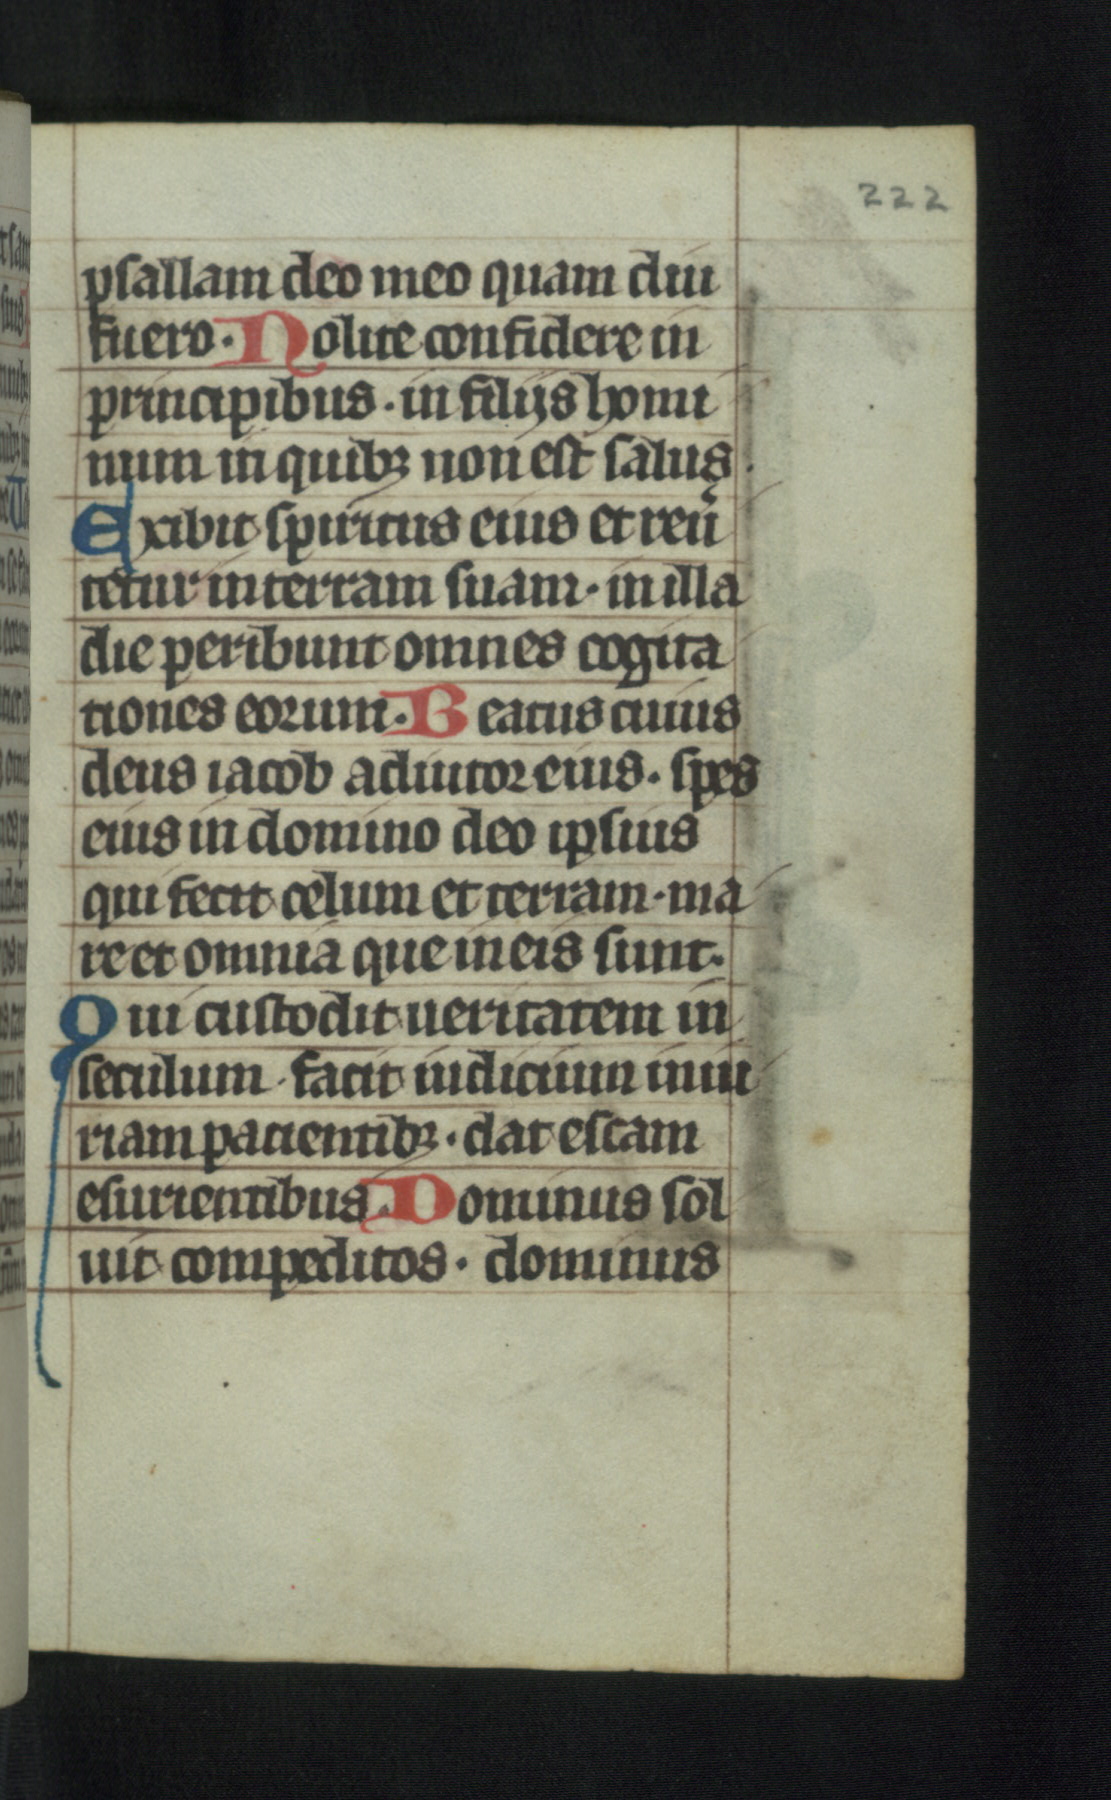 222
psallam deo meo quam diu
fuero. Nolite confidere in
principibus. in filijs homi
num in quibꝫ non est salus.
Exibit spiritus eius et reũ
tetur in terram suam. in illa
die peribunt omnes cogita
tiones eorum. Beatus cuius
deus iacob adiutor eius. spes
eius in domino deo ipsius
qui fecit celum et terram. ma
re et omnia que in eis sunt.
Qui custodit ueritatem in
seculum. facit iudicium iniu
riam pacientibꝫ. dat escam
esurientibus. Dominus sol
uit compeditos. dominus